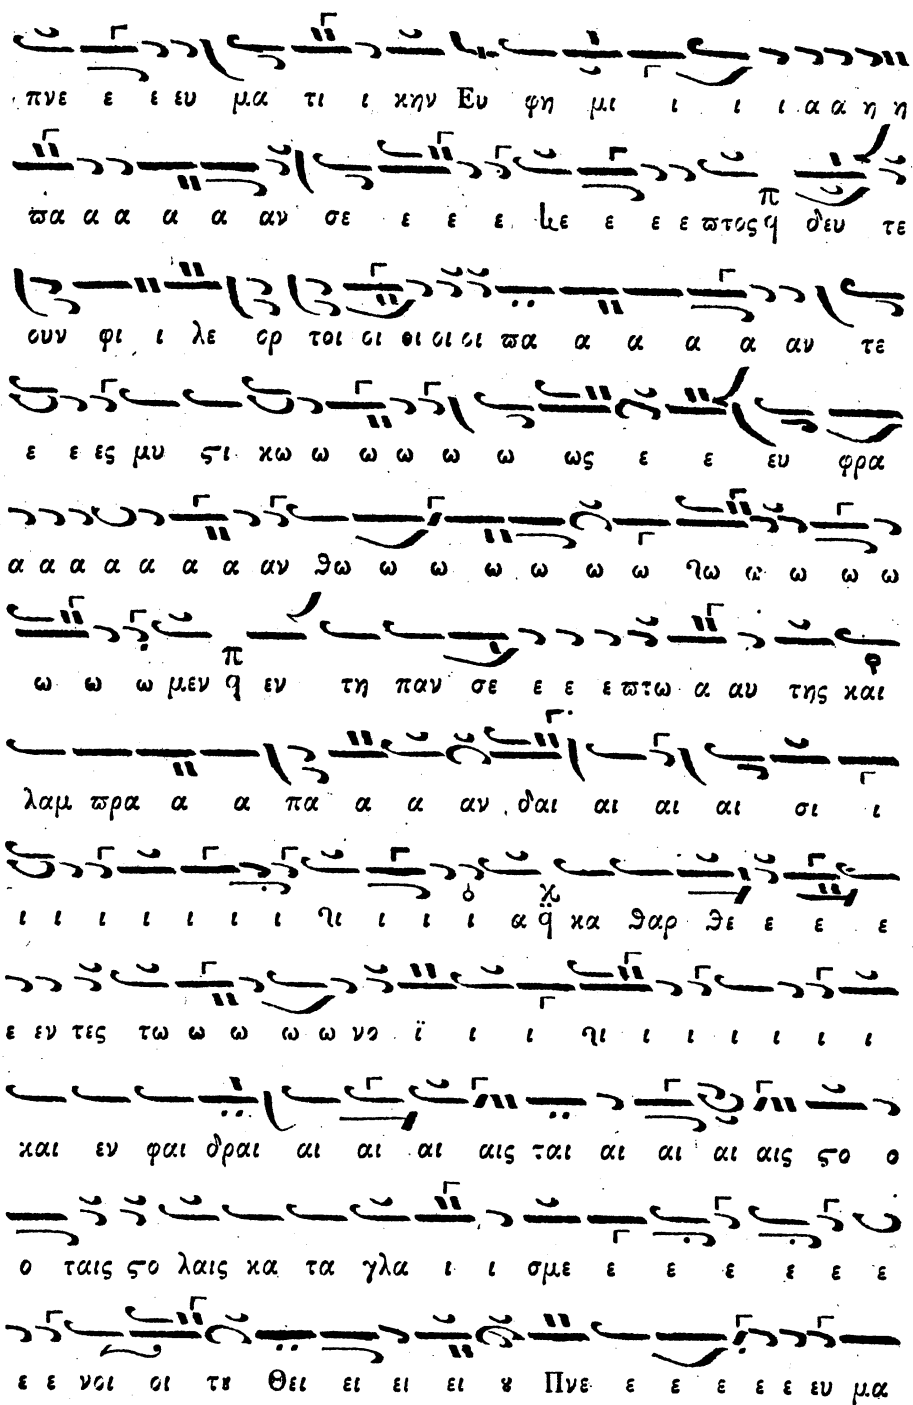 πνε ε ε ευ μα τι ι κην Ευ φη μι ι ι ι α α η η
ϖα α α α α αν σε ε ε ε κε ε ε ε ϖτος δευ τε
ουν φι ι λε ορ τοι οι θι οι οι ϖα α α α α αν τε
ε ε ες μυ ϛι κω ω ω ω ω ω ως ε ε ευ φρα
α α α α α α α αν θω ω ω ω ω ω ω ω ω ω ω
ω ω ω μεν εν τη παν σε ε ε ε ϖτω α αυ της και
λαμ ϖρα α α πα α α αν δαι αι αι αι σι ι
ι ι ι ι ι ι ι ι ι ι ι α κα θαρ θε ε ε ε
ε εν τες τω ω ω ω ω νο ϊ ι ι ι ι ι ι ι ι
και εν φαι δραι αι αι αι αις ται αι αι αι αις ϛο ο
ο ταις ϛο λαις κα τα γλα ι ι σμε ε ε ε ε ε ε
ε ε νοι οι τȣ Θει ει ει ει ȣ Πνε ε ε ε ε ε ευ μα